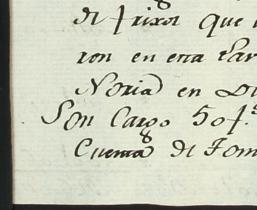 de frixol que
ron en esta
Noria en
Son Cargo 50 f.
Cuenta de